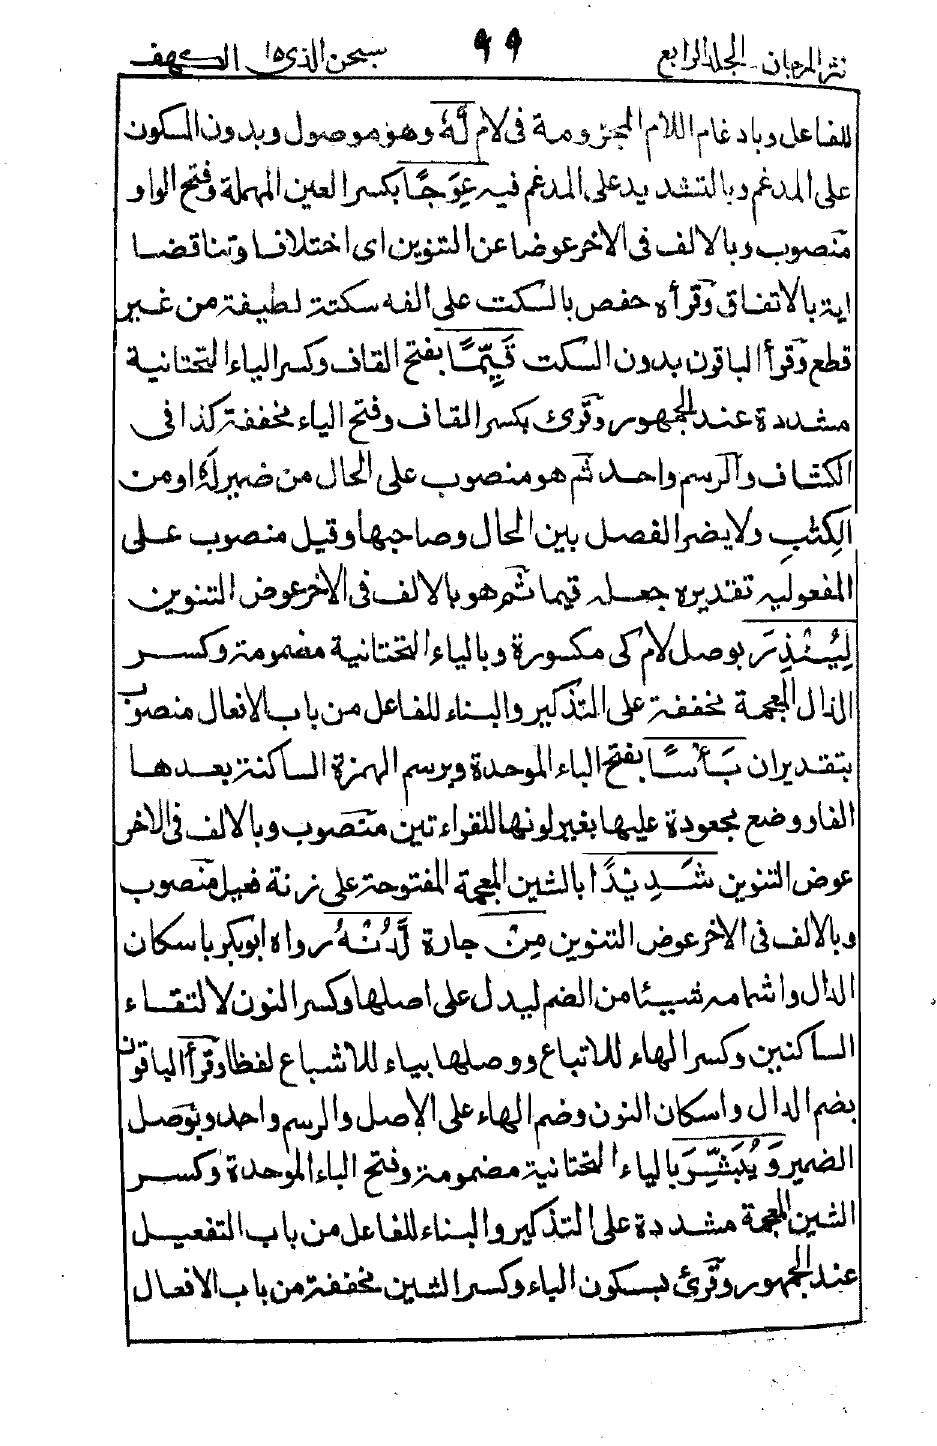 نثر المرجان - الجلد الرابع ٩٩ سبحن الذي ١٥ الكهف
للفاعل وبادغام اللام المجزومة فى لام لَّهُ وهو موصول وبدون السكون
على المدغم وبالتشديد على المدغم فيه عِوَجًا بكسر العين المهملة وفتح الواو
منصوب وبالالف فى الاخر عوضا عن التنوين اى اختلافا وتناقضا
اية بالاتفاق وقرأه حفص بالسكت على الفه سكتة لطيفة من غير
قطع وقرأ الباقون بدون السكت قَيِّمًا بفتح القاف وكسر الياء التحتانية
مشددة عند الجمهور وقرئ بكسر القاف وفتح الياء مخففة كذا فى
الكشاف والرسم واحد ثم هو منصوب على الحال من ضمير لَهُ او من
الكِتٰبِ ولا يضر الفصل بين الحال وصاحبها وقيل منصوب على
المفعولية تقديره جعله قيما ثم هو بالالف فى الاخر عوض التنوين
لِيُنْذِرَ بوصل لام كى مكسورة وبالياء التحتانية مضمومة وكسر
الذال المعجمة مخففة على التذكير والبناء للفاعل من باب الافعال منصوب
بتقدير ان بَأْسًا بفتح الباء الموحدة وبرسم الهمزة الساكنة بعدها
الفا ووضع مجعودة عليها بغير لونها للقراءتين منصوب وبالالف فى الاخر
عوض التنوين شَدِيْدًا بالشين المعجمة المفتوحة على زنة فعيل منصوب
وبالالف فى الاخر عوض التنوين مِنْ جارة لَّدُنْهُ رواه ابو بكر باسكان
الدال واشمامه شيئا من الضم ليدل على اصلها وكسر النون لالتقاء
الساكنين وكسر الهاء للاتباع ووصلها بياء للاشباع لفظا وقرأ الباقون
بضم الدال واسكان النون وضم الهاء على الاصل والرسم واحد وبوصل
الضمير وَيُبَشِّرَ بالياء التحتانية مضمومة وفتح الباء الموحدة وكسر
الشين المعجمة مشددة على التذكير والبناء للفاعل من باب التفعيل
عند الجمهور وقرئ بسكون الباء وكسر الشين مخففة من باب الافعال